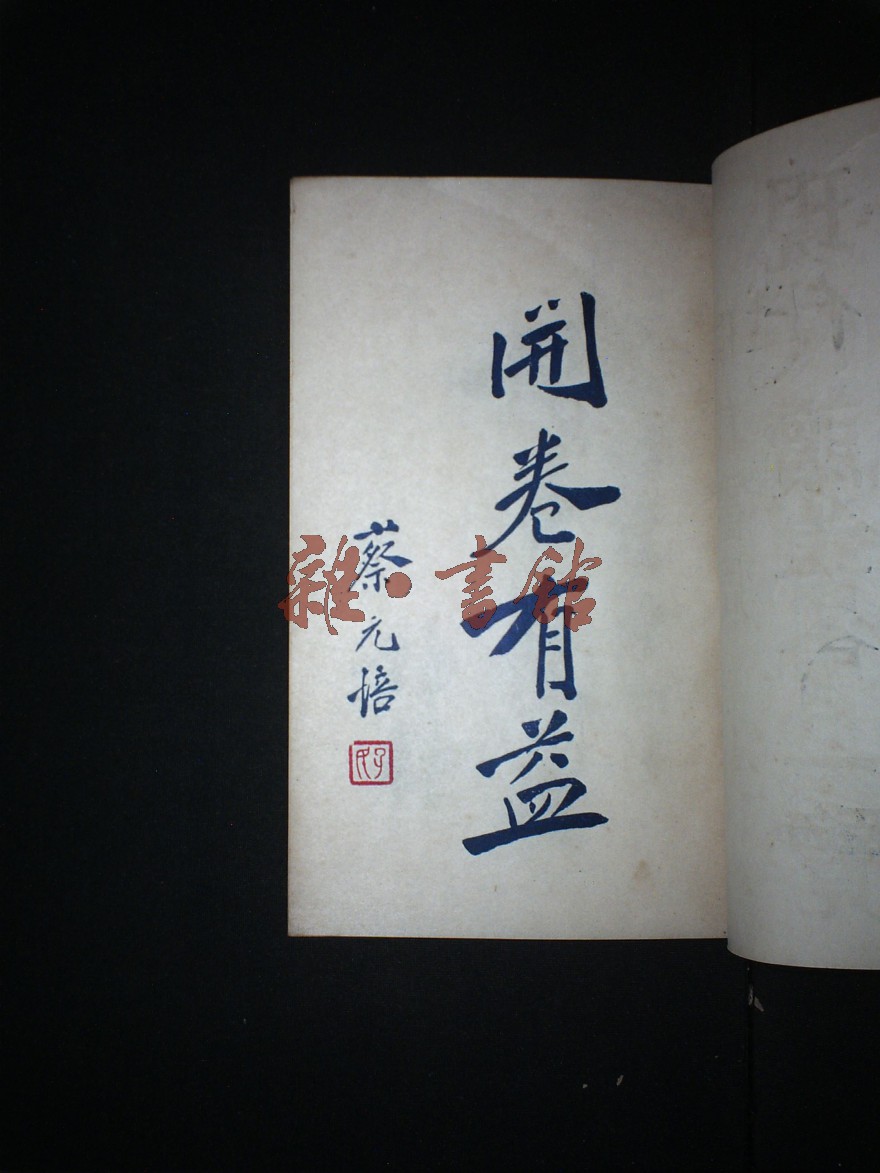 開卷有益
蔡元培
雜·書館